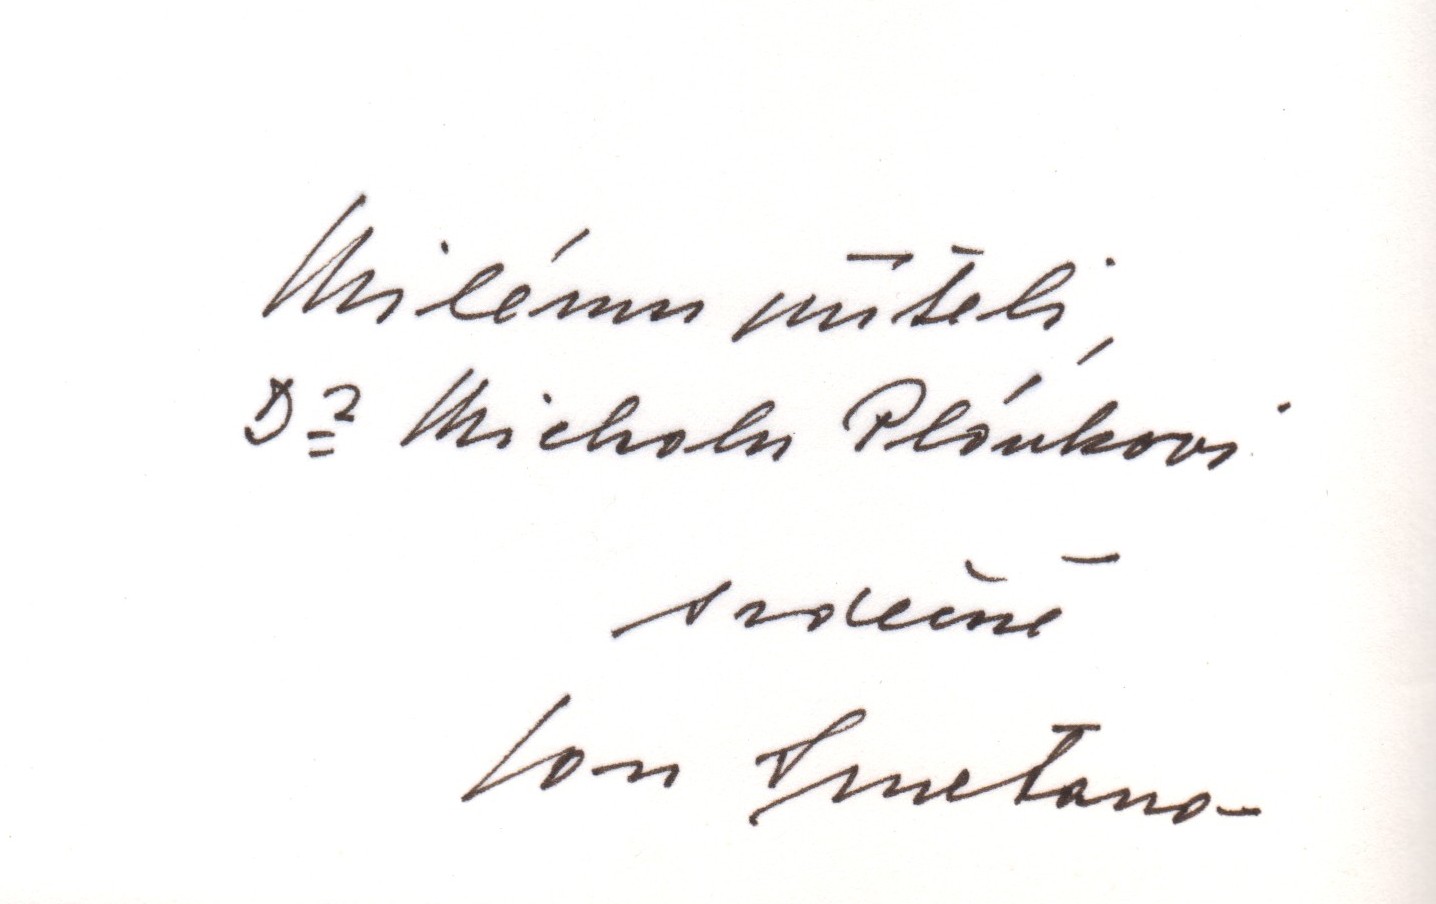 Milému příteli,
Dr Michalu Plánkovi
srdečně
Jan Smetana